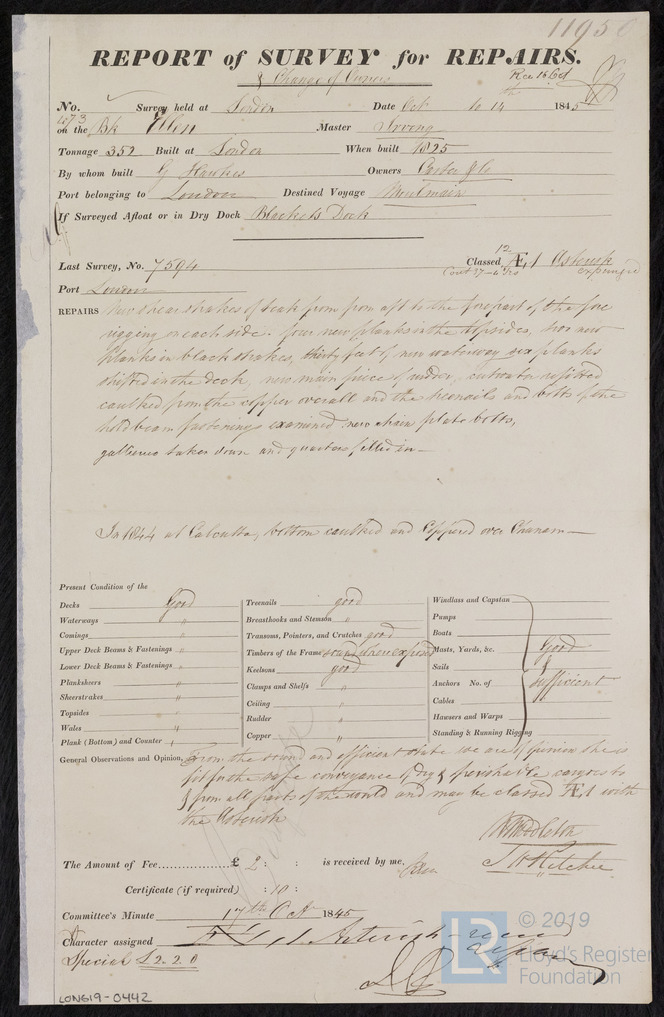 11950
REPORT of SURVEY for REPAIRS.
& Change of Owners
No. Survey held at London Date Oct to 14 1845
1073
on the Bk Ellen Master Irving
Tonnage 352 Built at London When built 1825
By whom built G Hawkes Owners & Co
Port belonging to London Destined Voyage Moulmain
If Surveyed Afloat or in Dry Dock Blacketts Dock
Last Survey, No. 7594 Classed 12 Æ1 Asterisk
Cont 37-4 expunged
Port London
REPAIRS New shear strakes of teak from aft to the forepart of the fore
rigging on each side. four new planks in the topsides, two new
planks in black strakes, thirty feet of new waterway six planks
shifted in the deck, new main piece of rudder, cutwater refitted
caulked from the copper overall and the treenails and bolts of the
hold beam fastenings examined new chain plate bolts,
galleries taken down and quarters filled in—
In 1844 at Calcutta, bottom caulked and Coppered over Chunam—
Present Condition of the
Decks Good
Waterways "
Comings "
Upper Deck Beams & Fastenings "
Lower Deck Beams & Fastenings "
Planksheers "
Sheerstrakes "
Topsides "
Wales "
Plank (Bottom) and Counter "
Treenails good
Breasthooks and Stemson "
Transons, Pointers, and Crutches good
Timbers of the Frame sound where exposed
Keelsons good
Clamps and Shelfs "
Ceiling "
Rudder "
Copper "
Windlass and Capstan
Pumps
Boats
Masts, Yards, &c. Good
Sails &
Anchors No. of sufficient
Cables
Hawsers and Warps
Standing & Running Rigging
General Observations and Opinion, From the sound and efficient state we are of opinion she is
fit for the safe conveyance of dry & perishable cargoes to
& from all parts of the world and may be classed Æ1 with
the Asterisk
W Middleton
J H Ritchie
The Amount of Fee £ 2 : : is received by me,
Certificate (if required) : 10 :
Committee's Minute 17th Oct 1845
Character assigned Asterisk
Special £2.2.0
LON619-0442
LR
© 2019
Lloyd's Register
Foundation